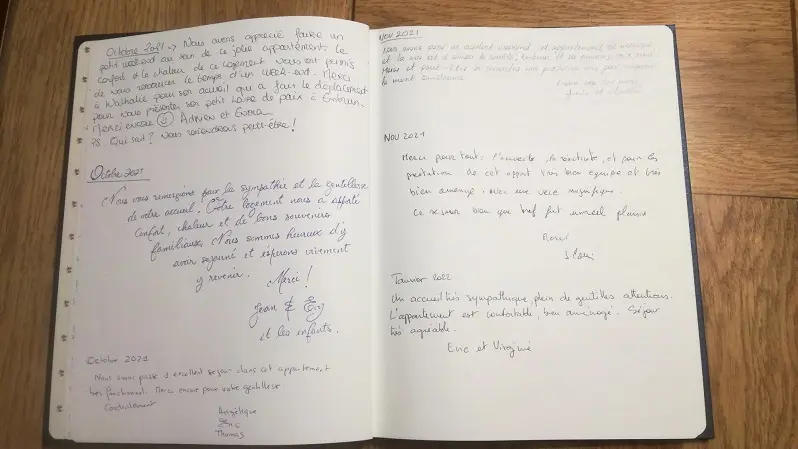 Octobre 2021 → Nous avons apprécié faire un
petit weekend au sein de ce jolie appartement. Le
confort et la chaleur de ce logement nous ont permis
de nous ressourcer le temps d'un week-end. Merci
à Nathalie pour son accueil qui a fais le déplacement
pour nous présenter son petit havre de paix à Embrun.
Merci encore ☺ Adrien et
PS. Qui sait? Nous reviendrons peut-être!
Octobre 2021
Nous vous remercions pour la sympathie et la gentillesse
de votre accueil. Votre logement nous a apporté
confort, chaleur et de bons souvenirs
familiaux. Nous sommes heureux d'y
avoir séjourné et espérons vivement
y revenir.
Merci!
Jean &
et les enfants.
Octobre 2021
Nous avons passé 1 excellent séjour dans cet appartement
très fonctionnel. Merci encore pour votre gentillesse
Cordialement
Angélique
Eric
Thomas
Nov 2021
Nous avons passé un excellent weekend, et appartement
et la vue est
Merci et peut-être
le mont
Nov 2021
Merci pour tout: l'accueil, la réactivité, et pour les
prestations de cet appart très bien équipé et très
bien aménagé, avec une vue magnifique.
Ce séjour bien que bref fut un réel plaisir
Merci
Janvier 2022
Un accueil très sympathique, plein de gentilles attentions.
L'appartement est confortable, bien aménagé. Séjour
très agréable.
Eric et Virginie